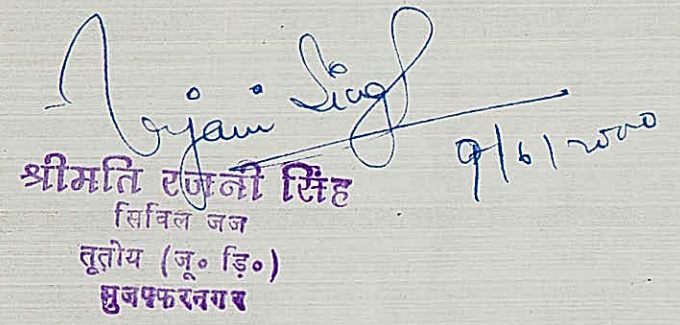 Rajani Singh
9/6/2000
श्रीमति रजनी सिंह
सिविल जज
तृतीय (जू० ड़ि०)
मुजफ्फरनगर